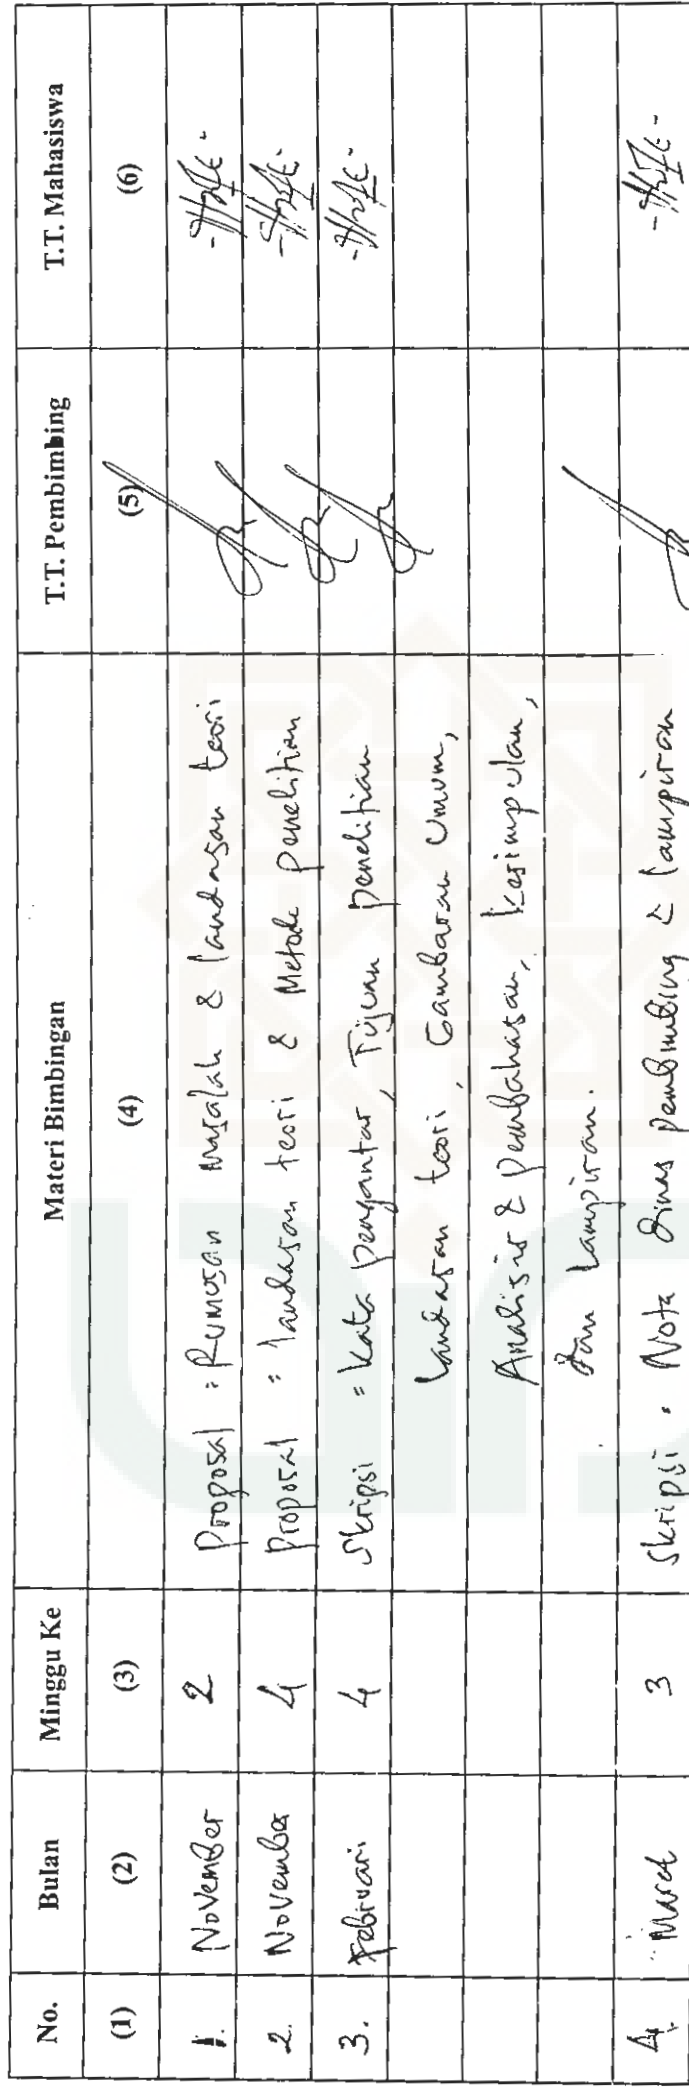 No. Bulan Minggu Ke Materi Bimbingan T.T. Pembimbing T.T. Mahasiswa
(1) (2) (3) (4) (5) (6)
1. November 2 Proposal : Rumusan masalah & landasan teori
2. November 4 Proposal : landasan teori & Metode penelitian
3. Februari 4 Skripsi : Kata pengantar, Tujuan penelitian
landasan teori, Gambaran Umum,
Analisis & pembahasan, kesimpulan,
dan lampiran.
4. Maret 3 Skripsi : Nota dinas pembimbing & lampiran